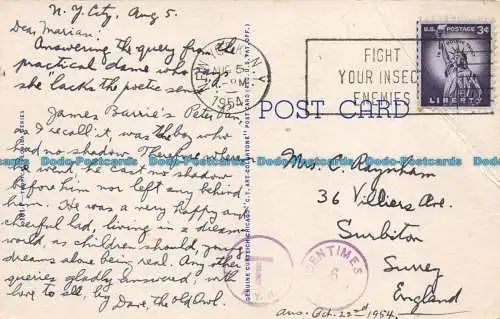 N.Y. City, Aug 5.
Dear Marian:
Answering the query from the
practical dame who says
she "lacks the poetic sense":
James Barrie's Peter Pan,
as I recall it, was the boy who
had no shadow. Therefore, where
he went, he cast no shadow
before him nor left any behind
him. He was a very happy and
cheerful lad, living in a dream
world, as children should, young
dreams alone being real. Any other
queries gladly answered, with
love to all, by Dave, the old Owl.
NEW YORK, N.Y.
AUG 5
PM
1954
FIGHT
YOUR INSECT
ENEMIES
U.S. POSTAGE
3¢
LIBERTY
POST CARD
GENUINE CURTEICH-CHICAGO "C.T. ART-COLORTONE" POST CARD (REG. U.S. PAT. OFF.)
Mrs. C. Raynham
36 Villiers Ave.
Surbiton
Surrey
England
CENTIMES
6
N.Y.
ans. Oct. 22nd 1954.
Dodo-Postcards Dodo-Postcards Dodo-Postcards Dodo-Postcards Dodo-Postcards